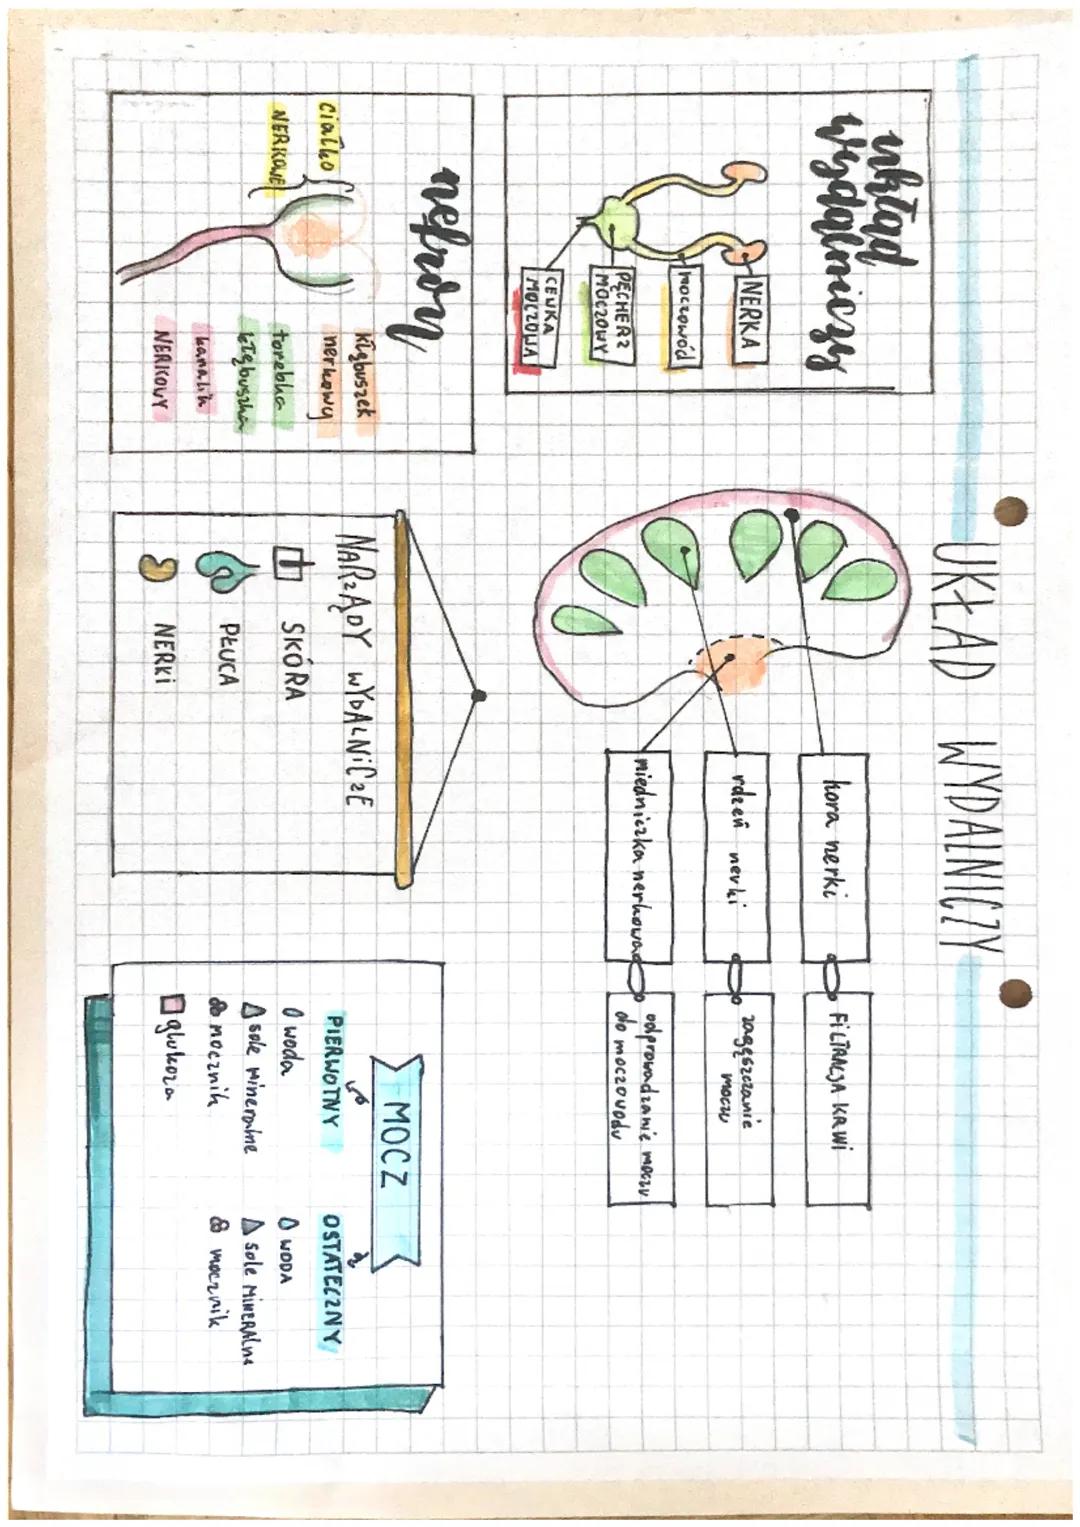 UKŁAD WYDALNICZY
układ
wydalniczy
NERKA
moczowód
PĘCHERZ
MOCZOWY
CEWKA
MOCZOWA
kora nerki
FILTRACJA KRWI
rdzeń nerki
zagęszczanie
moczu
miedniczka nerkowa
odprowadzanie moczu
do moczowodu
nefron
ciałko
NERKOWE
kłębuszek
nerkowy
torebka
kłębuszka
kanalik
NERKOWY
NARZĄDY WYDALNICZE
SKÓRA
PŁUCA
NERKI
MOCZ
PIERWOTNY
woda
sole mineralne
mocznik
glukoza
OSTATECZNY
WODA
sole MINERALNE
mocznik